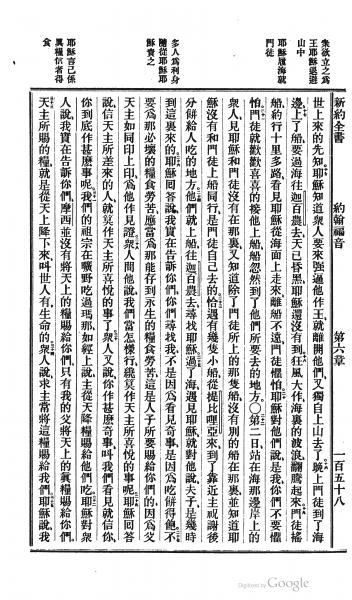 新約全書　約翰福音　第六章　一百五十八
衆欲立之爲
王耶穌退避
山中
耶穌履海就
門徒
多人爲利身
隨從耶穌耶
穌責之
耶穌言己係
眞糧信者得
食
世上來的先知耶穌知道衆人要來強逼他作王就離開他們又獨自上山去了晚上門徒到了海
邊上了船要過海往迦百農去天已昏黑耶穌還沒有到狂風大作海裏的波浪翻騰起來門徒搖
船約行十里多路看見耶穌從海面上走來離船不遠門徒懼怕耶穌對他們說是我你們不要懼
怕門徒就歡歡喜喜的接他上船船忽然到了他們所要去的地方〇第二日站在海那邊岸上的
衆人見耶穌和門徒沒有在那裏又知道除了門徒所上的那隻船沒有別的船在那裏並知道耶
穌沒有和門徒上船同行是門徒自己去的恰遇有幾隻小船從提比哩亞來到了靠近主祝謝後
分餅給人吃的地方他們就上船往迦百農去尋找耶穌過了海遇見耶穌就對他說夫子是幾時
到這裏來的耶穌回答說我實在告訴你們你們尋找我不是因爲看見奇事是因爲吃餅得飽不
要爲那必壞的糧食勞苦應當爲那能存到永生的糧食勞苦這是人子所要賜給你們的因爲父
天主如同印上印爲他作見證衆人問他說我們當怎樣行纔算作天主所喜悅的事呢耶穌回答
說信天主所差來的人就算作天主所喜悅的事了衆人又說你作甚麽奇事叫我們看見就信你
你到底作甚麽事呢我們的祖宗在曠野吃過瑪那如經上說主從天降糧賜給他們吃耶穌對衆
人說我實在告訴你們摩西並沒有將天上的糧賜給你們只有我的父將天上的眞糧賜給你們
天主所賜的糧就是從天上降下來叫世人有生命的衆人說求主當將這糧賜給我們耶穌說我
Digitized by Google